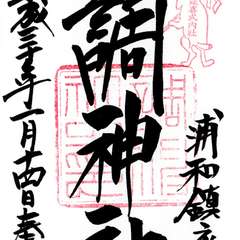 式内社
浦和鎮守
調神社
成三十年十一月十四日奉